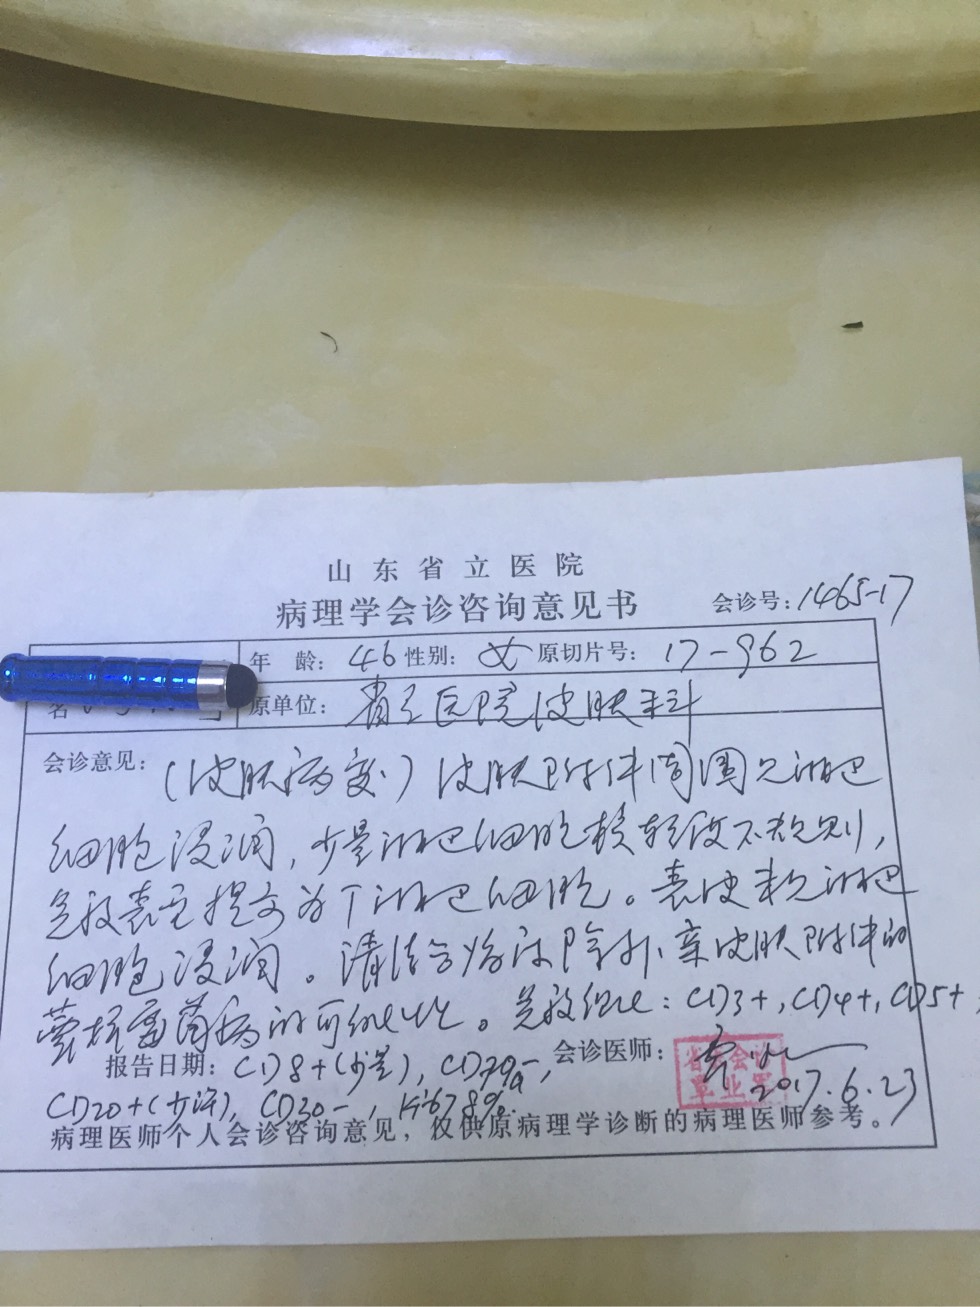 山东省立医院
病理学会诊咨询意见书 会诊号：1465-17
年 龄：46 性别：女 原切片号：17-962
名 原单位：省立医院皮肤科
会诊意见：（皮肤病变）皮肤附件周围见淋巴
细胞浸润，少量淋巴细胞核轻度不规则，
免疫表型提示为T淋巴细胞。表皮未见淋巴
细胞浸润。请结合临床除外亲皮肤附件的
蕈样霉菌病的可能性。免疫组化：CD3+，CD4+，CD5+，
报告日期：CD8+(少量)，CD79a-，会诊医师：
CD20+(少许)，CD30-，Ki67 8%. 2017.6.23
病理医师个人会诊咨询意见，仅供原病理学诊断的病理医师参考。